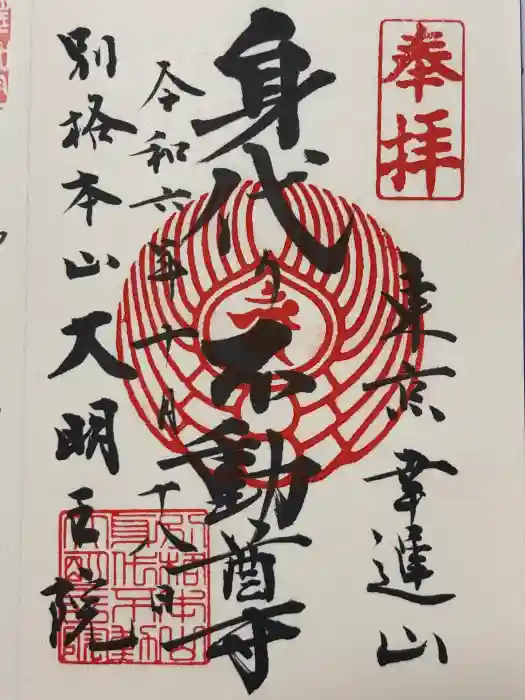 奉拝
東京 幸運山
身代り不動尊
令和六年十月十八日
別格本山 大明王院